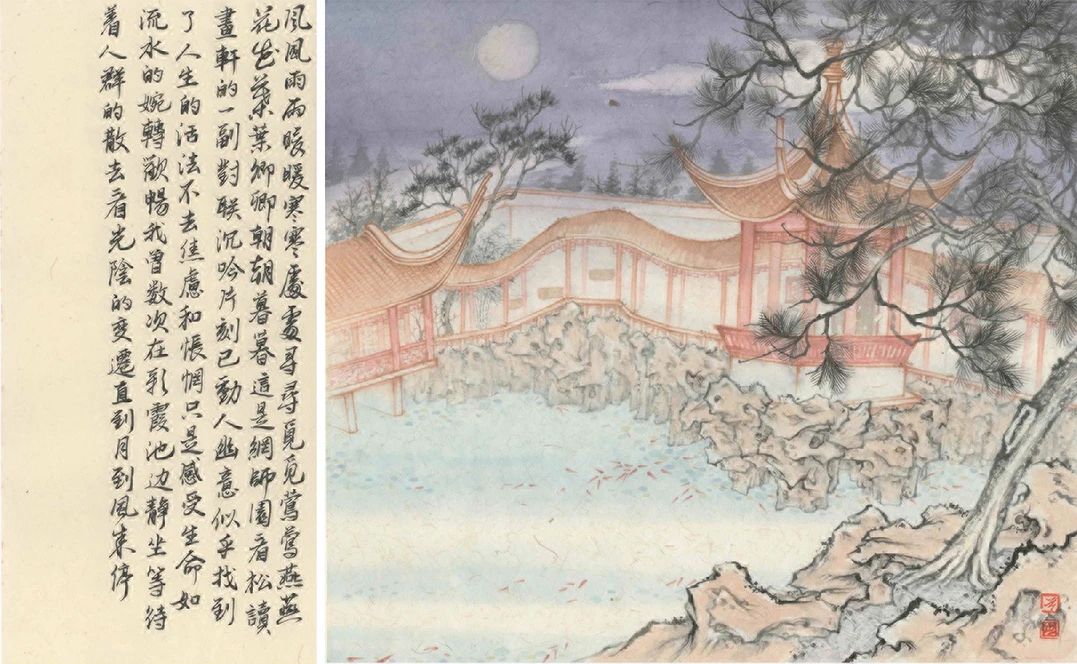 風風雨雨暖暖寒寒處處尋尋覓覓鶯鶯燕燕
花花葉葉卿卿朝朝暮暮這是網師園看松讀
畫軒的一副對联沉吟片刻已動人幽意似乎找到
了人生的活法不去焦慮和悵惘只是感受生命如
流水的婉轉歡暢我曾数次在彩霞池边静坐等待
着人群的散去看光陰的变遷直到月到風来停